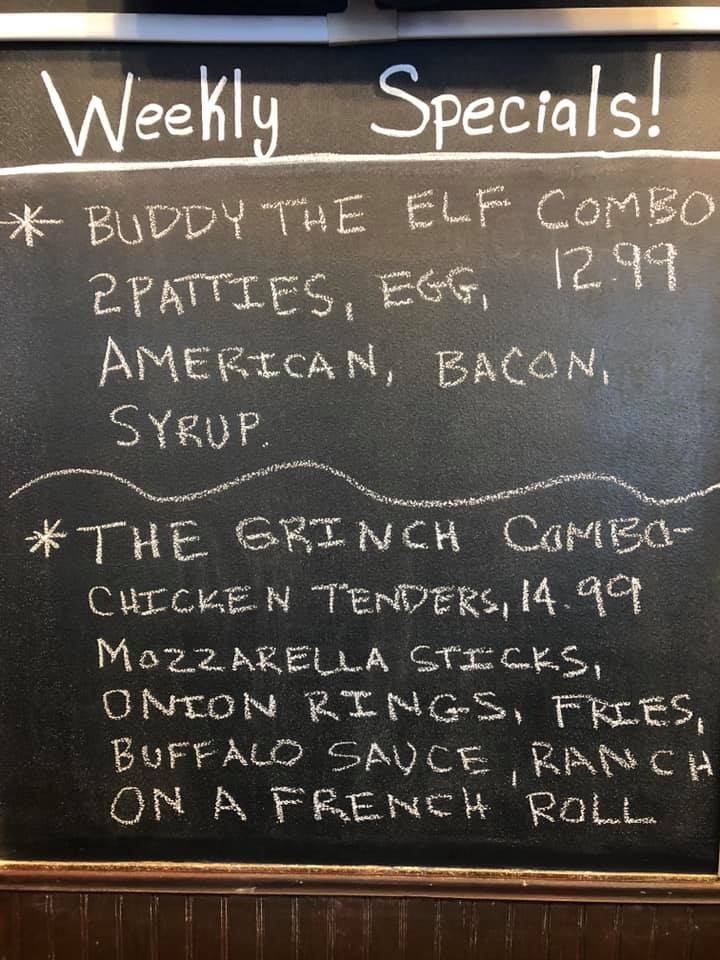 Weekly Specials!
* BUDDY THE ELF COMBO
12.99
2 PATTIES, EGG,
AMERICAN, BACON,
SYRUP.
* THE GRINCH COMBO-
CHICKEN TENDERS, 14.99
MOZZARELLA STICKS,
ONION RINGS, FRIES,
BUFFALO SAUCE, RANCH
ON A FRENCH ROLL